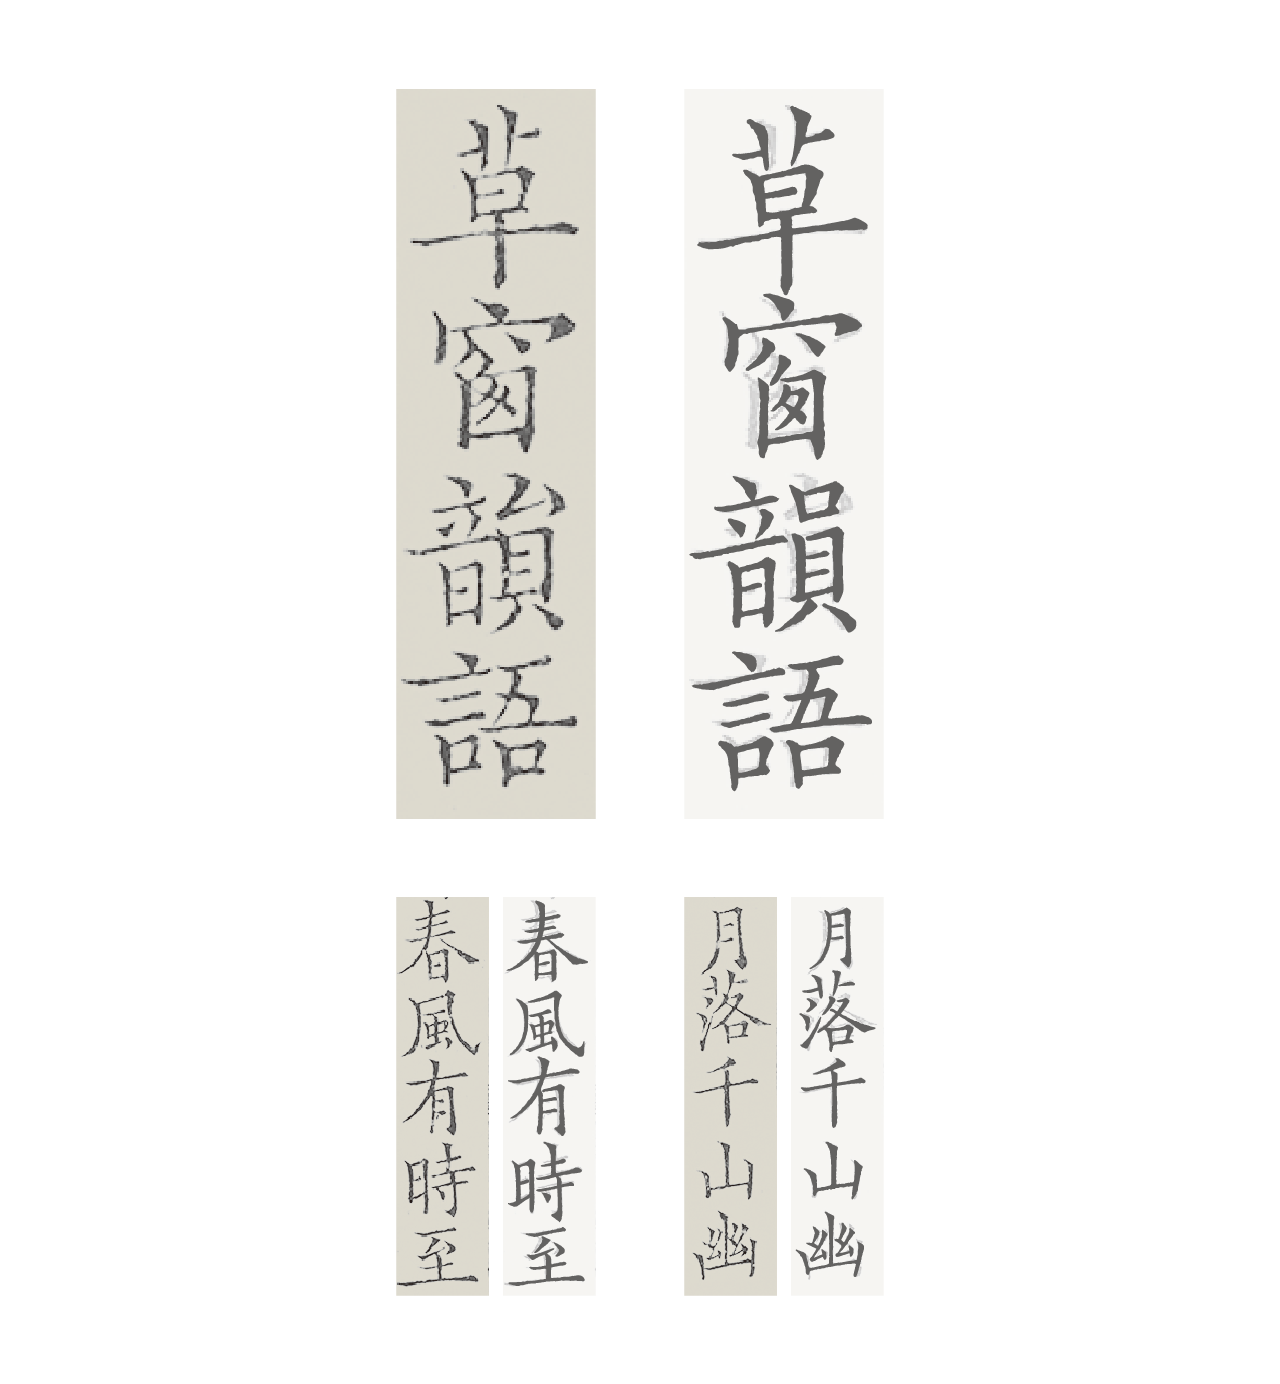 草窗韻語
草窗韻語
春風有時至
春風有時至
月落千山幽
月落千山幽